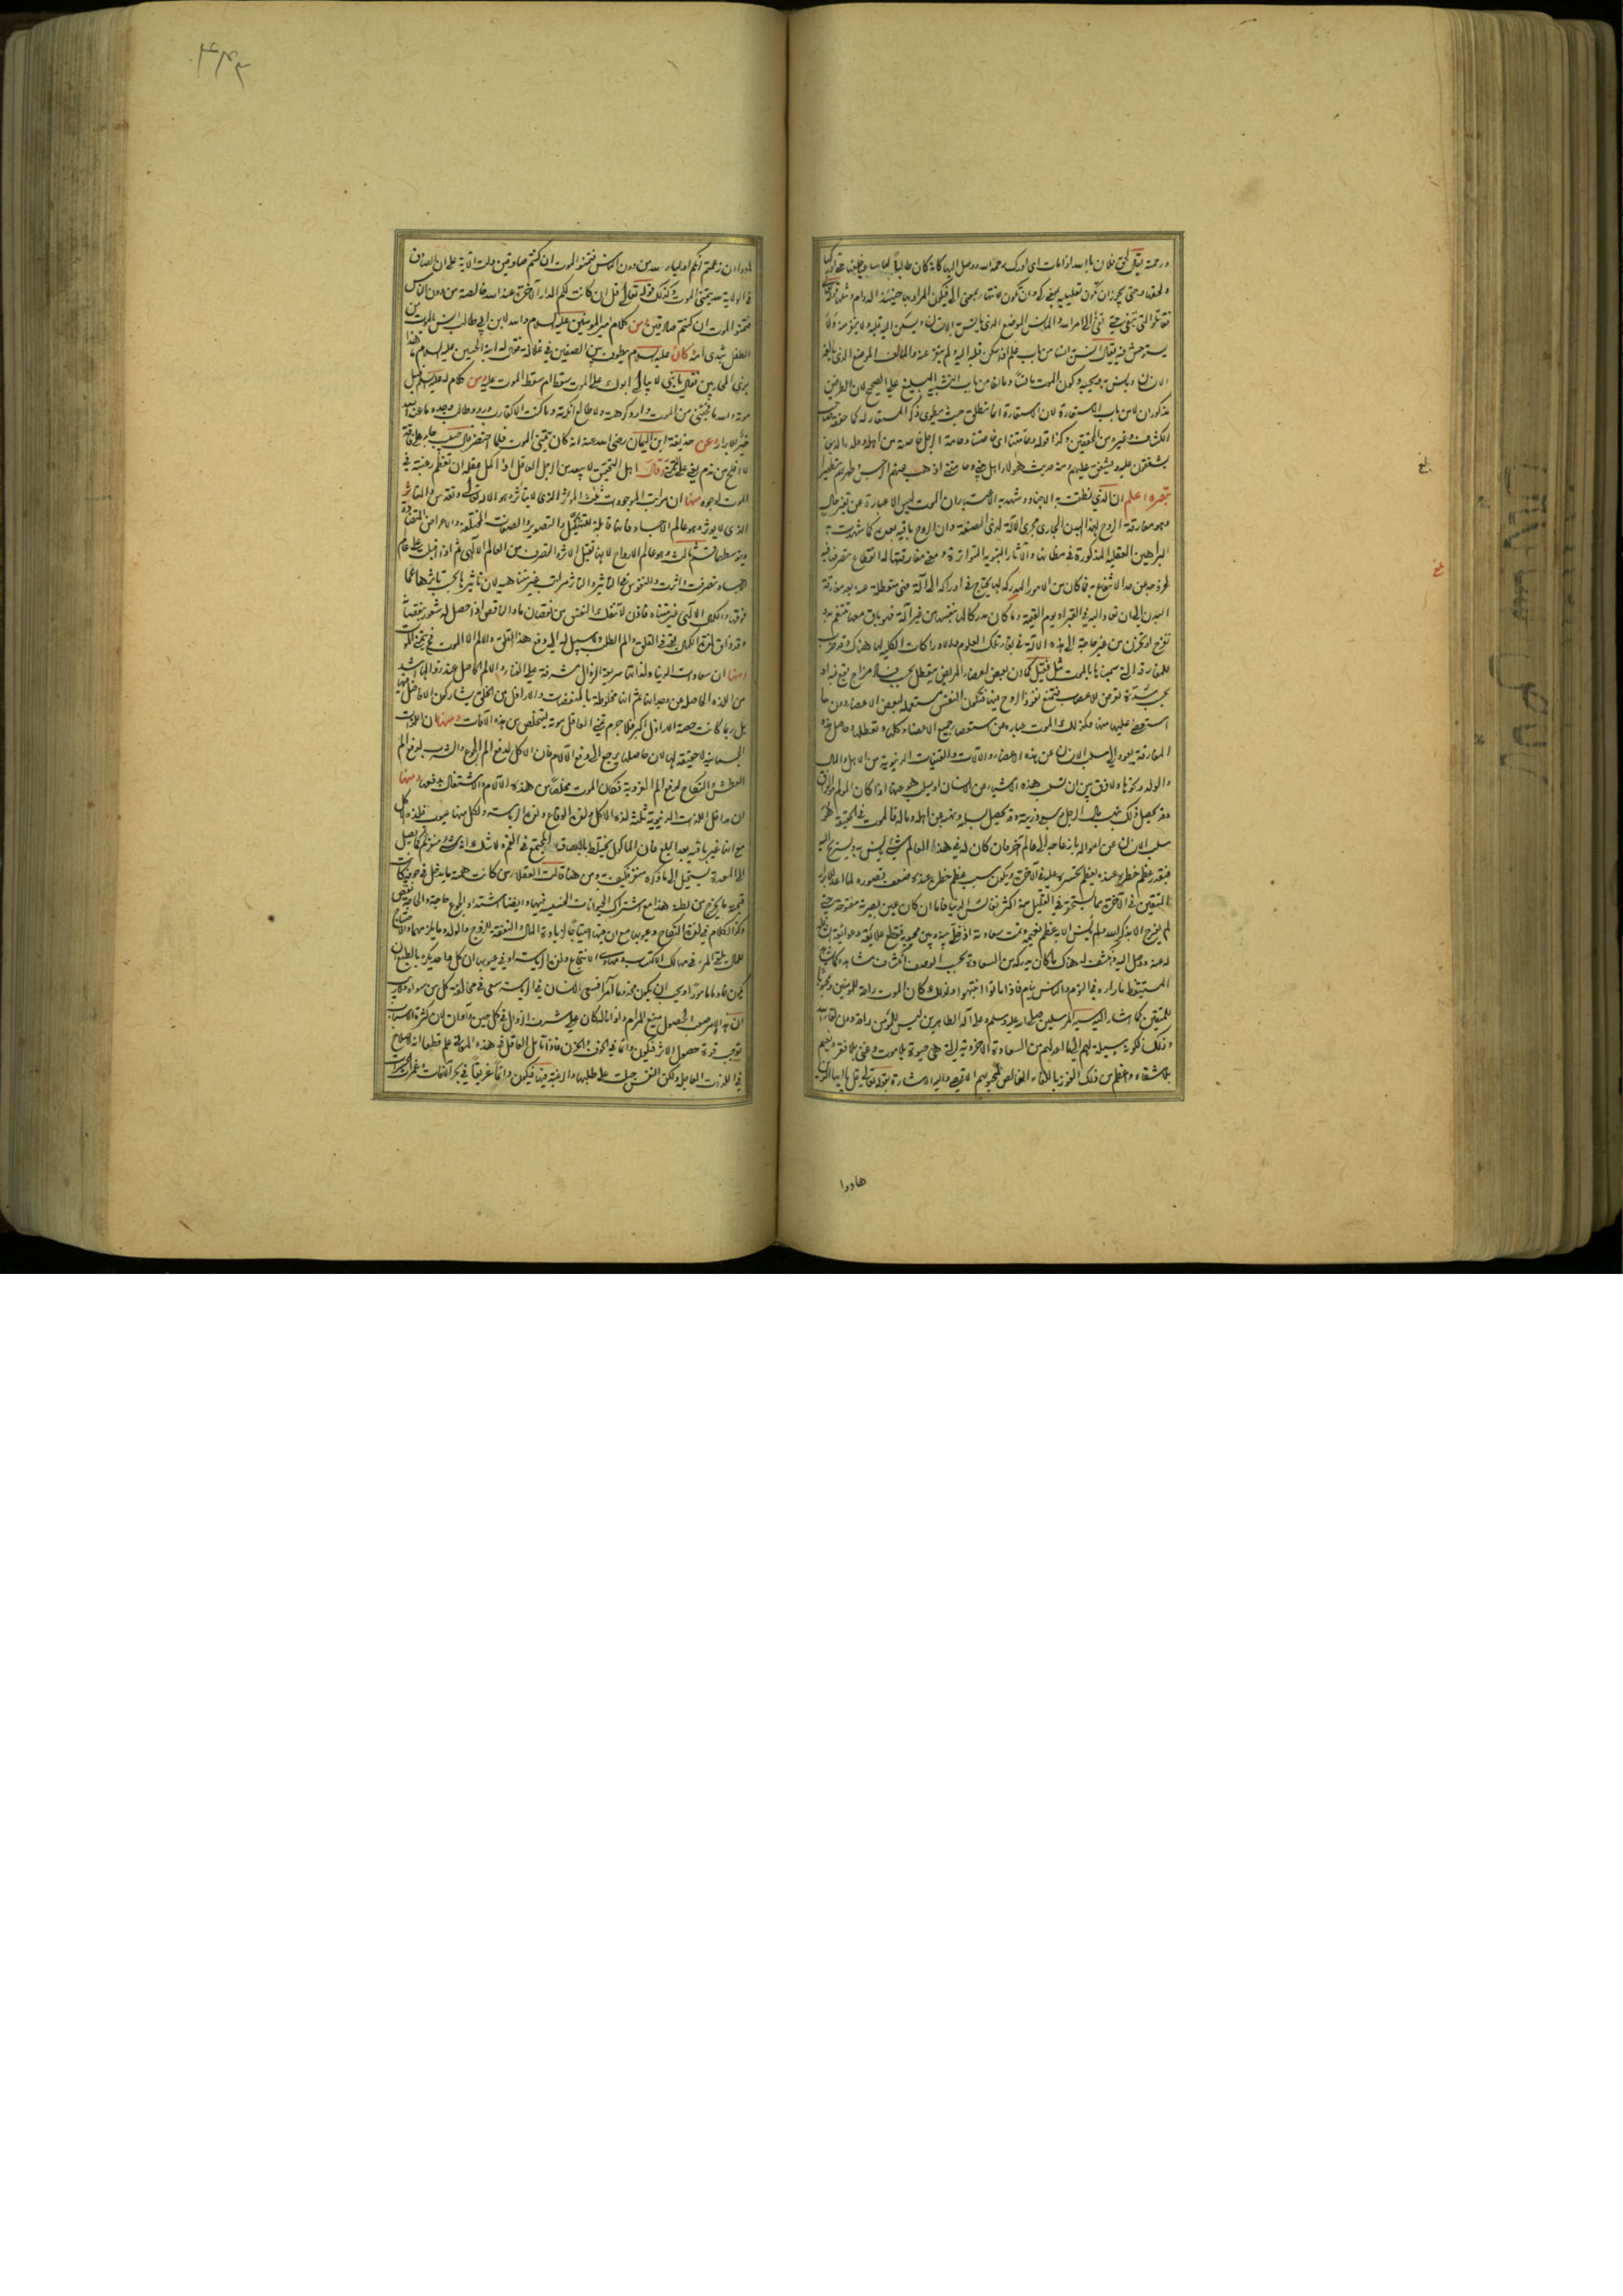 ورحمة يقال لحق فلان بالله اذا مات اى ادرك رحمة الله ووصل اليها كانه كان طالباً لها
ولحقنا وحتى يجوز ان تكون تعليلية بمعنى كى وان تكون لانتهاء بمعنى الى فيكون المراد بها حينئذ الدوام
فقاتلوا التى تبغى حتى تفئ الى امر الله والمأنس الموضع الذى يأنس به الانسان اى يسكن اليه قلبه ولا ينفر منه
يستوحش فيه يقال انس من باب علم اذا سكن قلبه اليه ولم ينفر عنه والمألف الموضع الذى يألفه
الانسان ويأنس به ويحبه وكون الموت مأنساً ومألفا من باب التشبيه البليغ على الصحيح لان الطرفين
مذكوران لا من باب الاستعارة لان الاستعارة انما تطلق حيث يطوى ذكر المستعار له كما حققه صاحب
الكشاف وغيره من المحققين وكذا قوله وحامتنا اى خاصتنا وحامة الرجل خاصته من اهله وولده
يشفقون عليه ويشفق عليهم ومنه حديث هؤلاء اهل بيتى وحامتى اذهب عنهم الرجس وطهرهم تطهيرا
تبصرة اعلم ان الذى نطقت به الاخبار وشهد به الاعتبار ان الموت ليس الا عبارة عن تغير حال
وهو مفارقة الروح لهذا البدن الجارى مجرى الآلة لذى الصنعة وان الروح باقية بعده كما شهدت به
البراهين العقلية المذكورة فى مظانها والآثار النبوية المتواترة ومعنى مفارقتها له انقطاع تصرفها فيه
لخروجه عن حد الانتفاع به فما كان من الامور المدركة لها يحتاج فى ادراكه الى آلة فهى متعطلة عنه بعد مفارقة
البدن الى ان تعاد اليه فى القبر او يوم القيمة وما كان مدركا لها بنفسها من غير آلة فهو باق معها تتنعم به و
تفرح او تحزن من غير حاجة الى هذه الآلة فى بقاء تلك العلوم والادراكات الكلية لها هناك
للمفارقة التى سميناها بالموت مثل فقيل كما ان بعض اعضاء المريض يتعطل بحسب فساد مزاج يقع فيه او
بحسب شدة تعرض للاعصاب فتمنع نفوذ الروح فيها فتكون النفس مستعملة لبعض الاعضاء دون ما
استعصى عليها منها فكذلك الموت عبارة عن استعصاء جميع الاعضاء كلها وتعطلها وحاصل هذه
المفارقة يعود الى سلب الانسان عن هذه الاعضاء والآلات والقنيات الدنيوية من الاهل والمال
والولد ونحوها ولا فرق بين ان تسلب هذه الاشياء عن الانسان او يسلب هو عنها اذا كان المولم هو الفراق
وقد يحصل ذلك بنهب مال الرجل وسبى ذريته وقد يحصل بسلبه ونهبه عن اهله وماله فالموت فى الحقيقة هو
سلب الانسان عن امواله بازعاجه الى عالم آخر فان كان له فى هذا العالم شئ يأنس به ويستريح اليه
فبقدر عظم خطره عنده يعظم تحسره عليه فى الآخرة ويكون سبب عظم خطره عنده ضعف تصوره لما اعد للابرار
المتقين فى الآخرة مما يستحقر فى القليل منه اكثر نفائس الدنيا فاما ان كان عين بصيرته مفتوحة حتى
لم يفرح الا بذكر الله ولم يأنس الا به عظم نعيمه وتمت سعادته اذ خلى بينه وبين محبوبه فقطع علائقه وعوائقه الشاغلة
له عنه ووصل اليه وانكشف له هناك ما كان يدركه من السعادة بحسب الوصف انكشاف مشاهدة كما
المستيقظ ما راءاه فى النوم والناس نيام فاذا ماتوا انتبهوا ولذلك كان الموت راحة للمؤمنين
للمتقين كما اشار اليه سيد المرسلين صلى الله عليه وسلم وعلى آله الطاهرين ليس للمؤمن راحة دون لقاء الله
وذلك لكونه وسيلة لهم الى ما اعد لهم من السعادة الاخروية التى هى حيوة بلا موت وغنى بلا فقر ونعيم
بلا شقاء واعظم من ذلك الفوز باللقاء الخالص لمحبوبهم الاقصى واليه الاشارة بقوله تعالى قل يا ايها الذين
هادوا
هادوا ان زعمتم انكم اولياء لله من دون الناس فتمنوا الموت ان كنتم صادقين دلت الآية على ان الصادق
فى الولاية لله يتمنى الموت وكذلك قوله تعالى قل ان كانت لكم الدار الآخرة عند الله خالصة من دون الناس
فتمنوا الموت ان كنتم صادقين ومن كلام امير المومنين عليه السلام والله لابن ابى طالب آنس بالموت من
الطفل بثدى امه كان عليه السلام يطوف بين الصفين فى غلالة فقال له ابنه الحسين عليه السلام ما هذا
بزى المحاربين فقال يا بنى لا يبالى ابوك على الموت سقط ام سقط الموت عليه ومن كلام له عليه السلام قبل
موته والله ما فجئنى من الموت وارد كرهته ولا طالع انكرته وما كنت الا كقارب ورد وطالب وجد وما عند الله
خير للابرار وعن حذيفة ابن اليمان رضى الله عنه انه كان يتمنى الموت فلما احتضر قال حبيب جاء على فاقة
لا افلح من ندم يعنى على التمنى وقال اهل التحقيق لا يبعد من الرجل العاقل اذا اكمل عقله ان تعظم رغبته فى
الموت لوجوه منها ان مراتب الموجودات ثلث المؤثر الذى لا يتأثر وهو الاله تعالى وتقدس والمتاثر
الذى لا يؤثر وهو عالم الاجساد فانها قابلة للتشكل والتصوير والصفات المختلفة والاعراض المتضادة
فوقها والكمال الالهى غير متناه فاذن لا تنفك النفس من نقصان ما والناقص اذا حصل له شعور بنقصانه
وقد ذاق لذة الكمال بقى فى القلق والم الطلب ولا سبيل له الى دفع هذا القلق والالم الا الموت فح يتمنى الموت
ومنها ان سعادات الدنيا ولذاتها سريعة الزوال مشرفة على الفناء والالم الحاصل عند زوالها اشد
من اللذة الحاصلة عن وجدانها ثم انها مخلوطة بالمنغصات والاراذل من الخلق يشاركون الافاضل فيها
بل ربما كانت حصة الاراذل اكبر فلا جرم يتمنى العاقل موته ليتخلص من هذه الآفات ومنها ان اللذات
الجسمانية لا حقيقة لها لان حاصلها يرجع الى دفع الآلام فان الاكل لدفع الم الجوع والشرب لدفع الم
العطش والنكاح لدفع الم العزوبة فكان الموت مخلصاً من هذه الآلام والاشتغال بدفعها ومنها
ان مداخل اللذات الدنيوية ثلثة لذة الاكل ولذة الوقاع ولذة الرياسة ولكل منها عيوب فلذة الاكل
مع انها غير باقية بعد البلع فان الماكول يختلط بالبصاق المجتمع فى الفم ولا شك انه شئ منفر ثم لما يصل
الى المعدة يستحيل الى ما ذكره منفر فكيف به ومن هنا قالت العقلاء من كانت همته ما يدخل فى جوفه كانت
قيمته ما يخرج من بطنه هذا مع اشتراك الحيوانات الخسيسة فيها وايضا اشتداد الجوع حاجة والحاجة نقص
وكذا الكلام فى لذة النكاح وعيوبه مع ان فيها احتياجاً الى زيادة المال والنفقة للزوج والولد وما يلزمهما والاحتياج
للمال يلقى المرء فى مهالك الاكتساب ومهاوى الانتجاع ولذة الرياسة ادنى عيوبها ان كل واحد يكره بالطبع ان
يكون خادما مامورا ويحب ان يكون مخدوما آمرا فسعى الانسان فى الرياسة سعى فى مخالفة كل من سواه
ان هذا الامر صعب الحصول منيع المرام واذا ناله كان على شرف الزوال فى كل حين واوان لان كثرة الاسباب
توجب قوة حصول الاثر فيكون دائما فى الخوف والحزن فاذا تامل العاقل فى هذه المعانى علم قطعا انه لا صلاح
فى اللذات العاجلة ولكن النفس جبلت على طلبها والرغبة فيها فيكون دائماً غريقاً فى بحر الآفات وغمرات